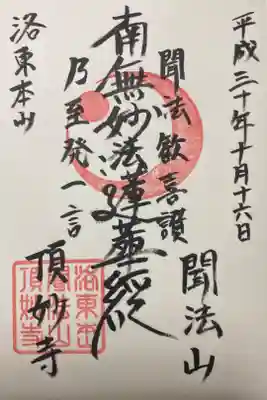 平成三十年十月十六日
聞法山
聞法歓喜讃
南無妙法蓮華経
乃至発一言
頂妙寺
洛東本山
洛東本山
聞法山
頂妙寺